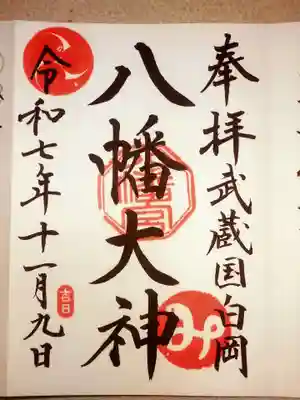 奉拝武蔵国白岡
八幡大神
令和七年十一月九日
吉日